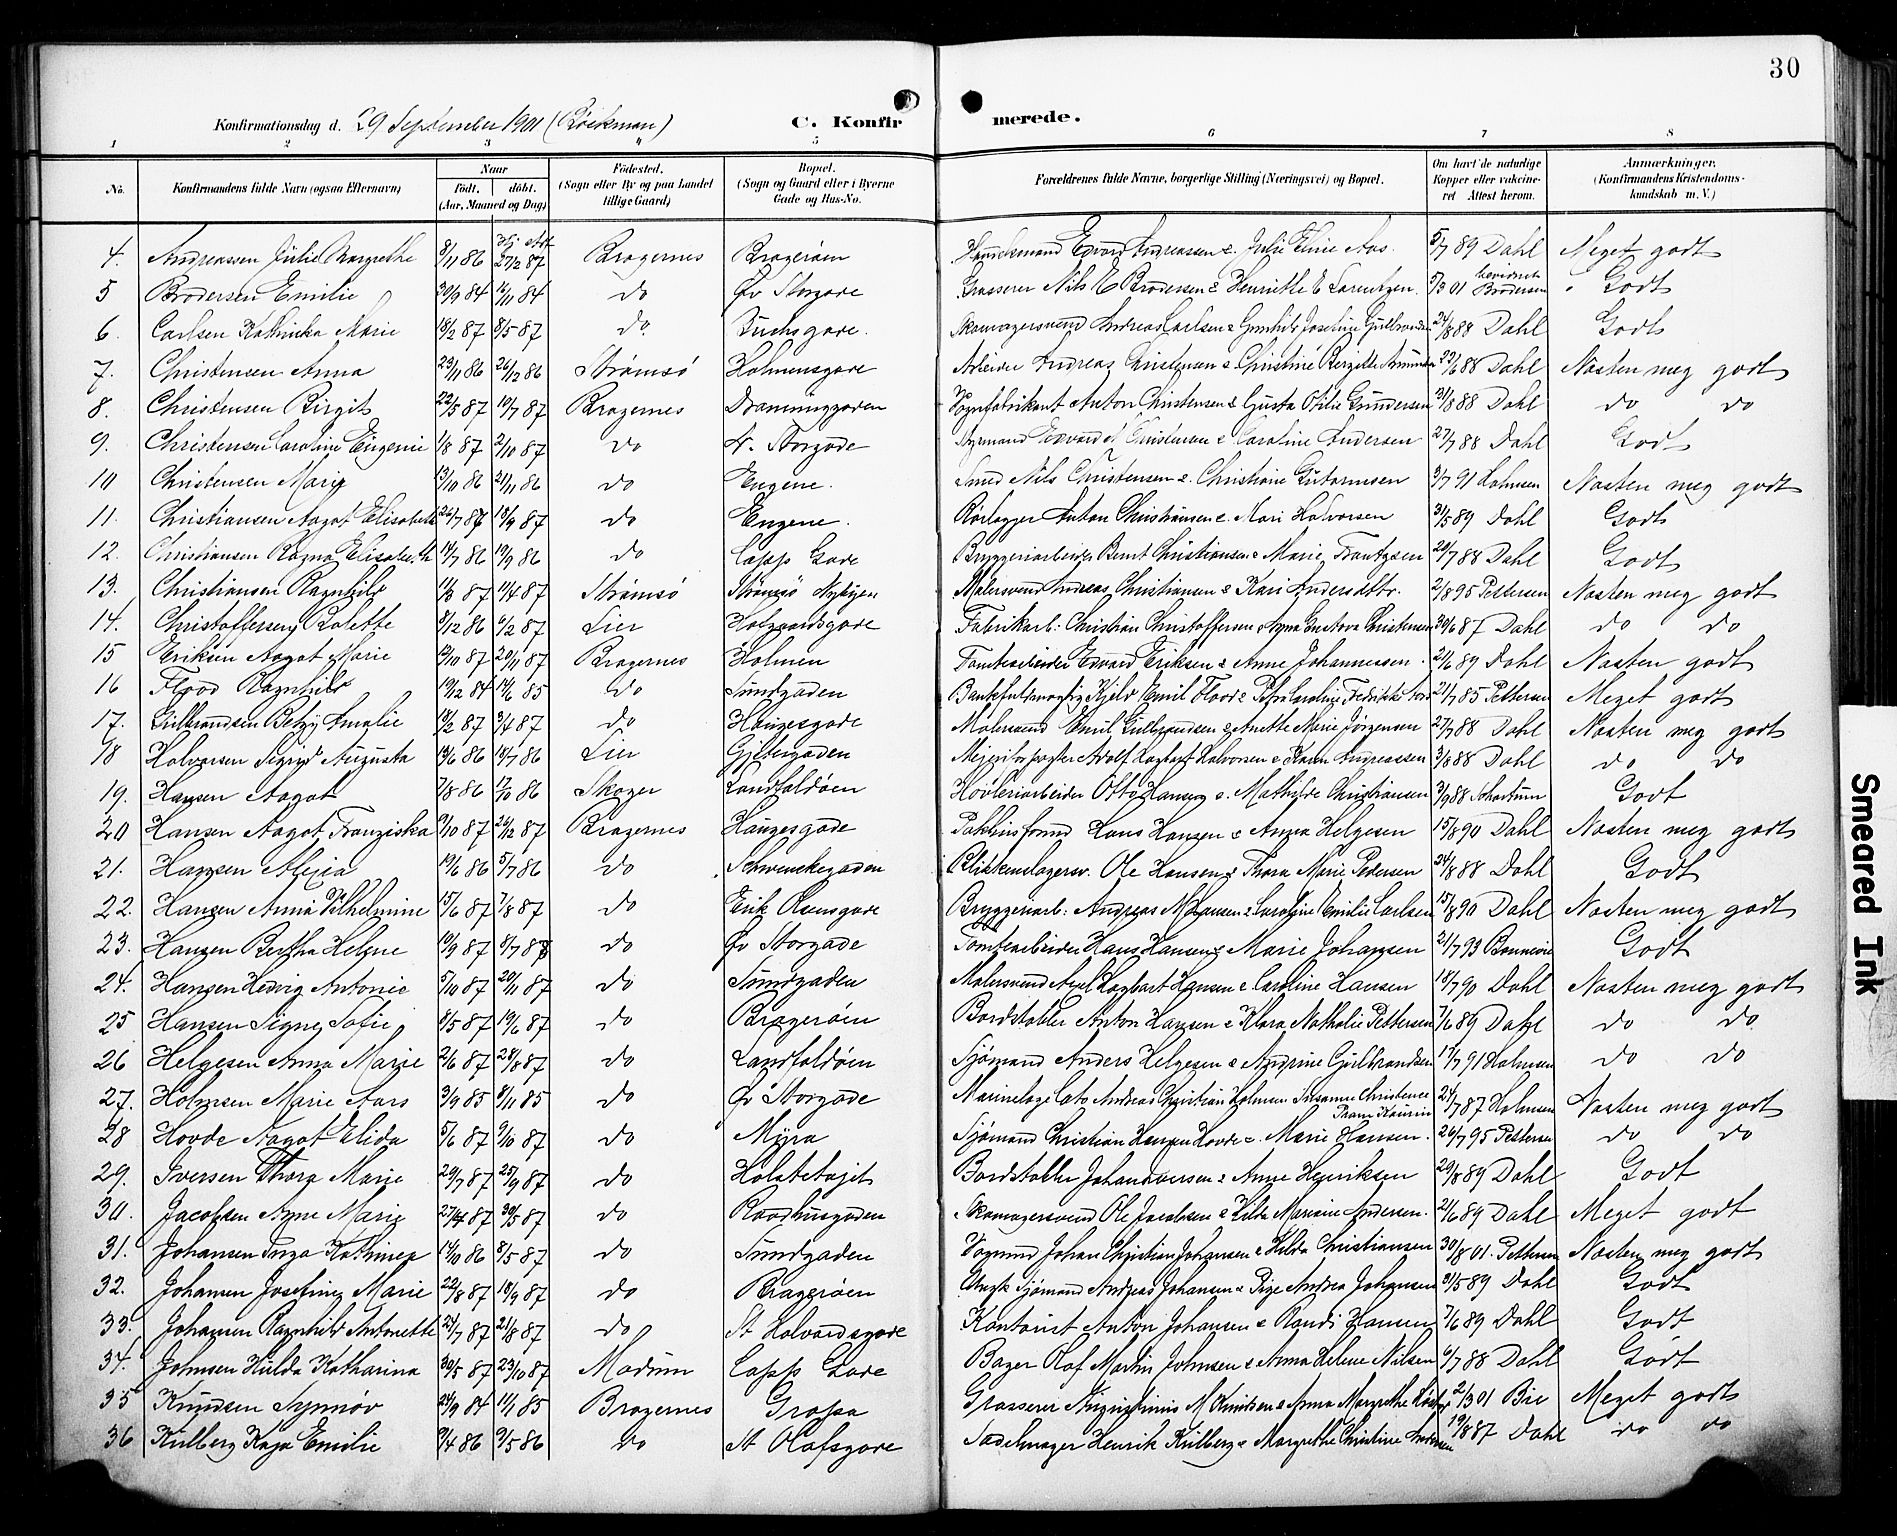 30
Konfirmationsdag d. 29 September 1901 C. Konfirmerede.
1 2 3 4 5 6 7 8
No. Konfirmandens fulde Navn (ogsaa Efternavn) Naar Födt. döbt. (Aar, Maaned og Dag) Födested. (Sogn eller By og paa Landet tillige Gaard) Bopæl. (Sogn og Gaard eller i Byerne Gade og Hus-No. Forældrenes fulde Navne, borgerlige Stilling (Næringsvei) og Bopæl. Om havt de naturlige Kopper eller vaccineret Attest herom. Anmærkninger. (Konfirmandens Kristendomskundskab m. V.)
4. Andreassen Julie Margrethe 8/11 86 27/2 87 Bragernes Bragerøen Edvard Andreassen & Julie Aas. 5/7 89 Dahl Meget godt
5 Brodersen Emilie 30/9 84 12/11 84 do Øv Storgade Grosserer Nils E Brodersen & Henriette E Lorentzen. 5/3 01 Brodersen Godt
6. Carlsen Kathinka Marie 18/2 87 8/5 87 do Buchsgade. Skomagersvend Andreas Carlsen & Gunhild Josefine 24/8 88 Dahl Godt
7. Christensen Anna 23/11 86 26/12 86 Strømsö Holmensgade Arbeider Andreas Christensen & Christine Bergitte 23/6 88 Dahl Næsten meg godt
8. Christensen Birgit 22/5 87 10/7 87 Bragernes Dronninggaden Vognfabrikant Anton Christensen & Gusta Otilie Gundersen 31/8 88 Dahl do do
9. Christensen Caroline Eugenie 1/8 87 2/10 87 do N. Storgade Styrmand Edvard Christensen & Caroline Andersen 27/7 88 Dahl Godt
10 Christensen Marie 13/10 86 21/11 86 do Engene. Smed Nils Christensen & Christiane Gutormsen 3/7 91 Holmsen Næsten meg godt
11. Christiansen Aagot Elisabeth 26/7 87 18/9 87 do Engene. Rørlægger Anton Christiansen & Mari Halvorsen 31/5 89 Dahl Godt
12. Christiansen Ragna Elisabeth 14/7 86 19/9 86 do Capps Gade Bryggeriarbeider Bernt Christiansen & Marie Frantzsen 20/7 88 Dahl Godt
13. Christiansen Ragnhild 11/3 87 11/4 87 Strømsö Strømsö Nybyen Malersvend Andreas Christiansen & Kari Andersdttr. 2/8 95 Pettersen Næsten meg godt
14. Christoffersen Bolette 8/12 86 6/2 87 Lier Holgaardsgade Fabrikarb: Christian Christoffersen & Gustava Christensen 30/6 87 Dahl do do
15 Eriksen Aagot Marie 12/10 87 20/11 87 Bragernes Holmen Tomtearbeider Edvard Eriksen & Anne Johannessen. 21/6 89 Dahl Næsten godt
16 Flood Ragnhild 19/12 84 14/6 85 do Sundgaden Kjeld Emil Flood & Petra Caroline Fredrikke 21/7 85 Pettersen Meget godt
17. Gulbrandsen Betzy Amalie 13/2 87 3/4 87 do Haugesgade Malersvend Emil Gulbrandsen & Anette Marie Jörgensen 27/7 88 Dahl Næsten meg godt
18 Halvorsen Sigrid Augusta 13/6 86 18/7 86 Lier Gjetergaden Meieriforpagter Adolf Dagbart Halvorsen & Karen Andreassen 3/8 88 Dahl do do
19. Hansen Aagot 7/8 86 17/10 86 Skoger Landfaldöen Høvleriarbeider Otto Hansen & Mathilde Christiansen 3/9 88 Schartum Godt
20 Hansen Aagot Franziska 9/10 87 26/12 87 Bragernes Haugesgade Pakhusformd Hans Hansen & Anna Helgesen 15/8 90 Dahl Næsten meg godt
21. Hansen Alexia 19/6 86 5/7 86 do Schwenckegaden Blikkenslagersv. Ole Hansen & Thora Marie Pedersen 24/8 88 Dahl Godt
22. Hansen Anna Vilhelmine 15/6 87 7/8 87 do Erik Olsensgade Bryggeriarb: Andreas M Hansen & Caroline Emilie Carlsen 15/8 90 Dahl Næsten meg godt
23. Hansen Bertha Helene 10/9 87 8/7 88 do Øv Storgade Tomtearbeider Hans Hansen & Marie Johansen 21/7 93 Bonnevie Godt
24. Hansen Hedvig Antonie 5/10 87 20/11 87 do Sundgaden Malersvend Axel Dagbart Hansen & Caroline Hansen 18/7 90 Dahl Næsten meg godt
25 Hansen Signe Sofie 8/5 87 19/6 87 do Bragerøen Bordstabler Anton Hansen & Klara Nathalie Pettersen 7/6 89 Dahl do do
26 Helgesen Anna Marie 2/6 87 28/8 87 do Landfaldöen Sjömand Anders Helgesen & Andrine Gulbrandsen 17/7 91 Holmsen do do
27. Holmsen Marie Aars 3/9 85 8/11 85 do Øv Storgade Marinelæge Cato Andreas Christian Holmsen & Susanne Christence 24/7 87 Holmsen Næsten meg godt
28 Hovde Aagot Elida 5/6 87 9/10 87 do Myra Sjömand Christian Hansen Hovde & Marie Hansen. 26/7 95 Pettersen do do
29. Iversen Thora Marie 29/7 87 25/9 87 do Holstetøjet Bordstabler Johan Iversen & Anne Henriksen 29/8 89 Dahl Godt
30. Jacobsen Anne Marie 27/4 87 30/5 87 do Raadhusgaden Skomagersvend Ole Jacobsen & Hilda Mariane Andersen. 21/6 89 Dahl Meget godt
31. Johansen Inga Kathinea 14/10 86 8/5 87 do Sundgaden Vognmd Johan Christian Johansen & Hilda Christiansen 30/8 01. Pettersen Næsten meg godt
32. Johansen Josefine Marie 22/8 87 18/9 87 do Bragerøen Sjömand Andreas Johansen & Andrea Johansen 31/5 89 Dahl Godt
33. Johansen Ragnhild Antonette 24/7 87 21/8 87 do St Halvardsgade Kontorist Anton Johansen & Randi Hansen 7/6 89 Dahl Godt
34. Johnsen Hulda Katharina 30/5 87 23/10 87 Modum Capps Gade Bager Olaf Martin Johnsen & Anna Helene Nilsen 6/7 88 Dahl Godt
35 Knudsen Synnöv 24/9 84 11/1 85 Bragernes Gropa Grosserer Augustinius M Knudsen & Anna Margrethe 2/3 01 Bie Meget godt
36 Kulberg Kaja Emilie 9/4 86 9/5 86 do St Olafsgade Sadelmager Henrik Kulberg & Margrethe Christine Andersen 19/8 87 Dahl do do
Smeared Ink